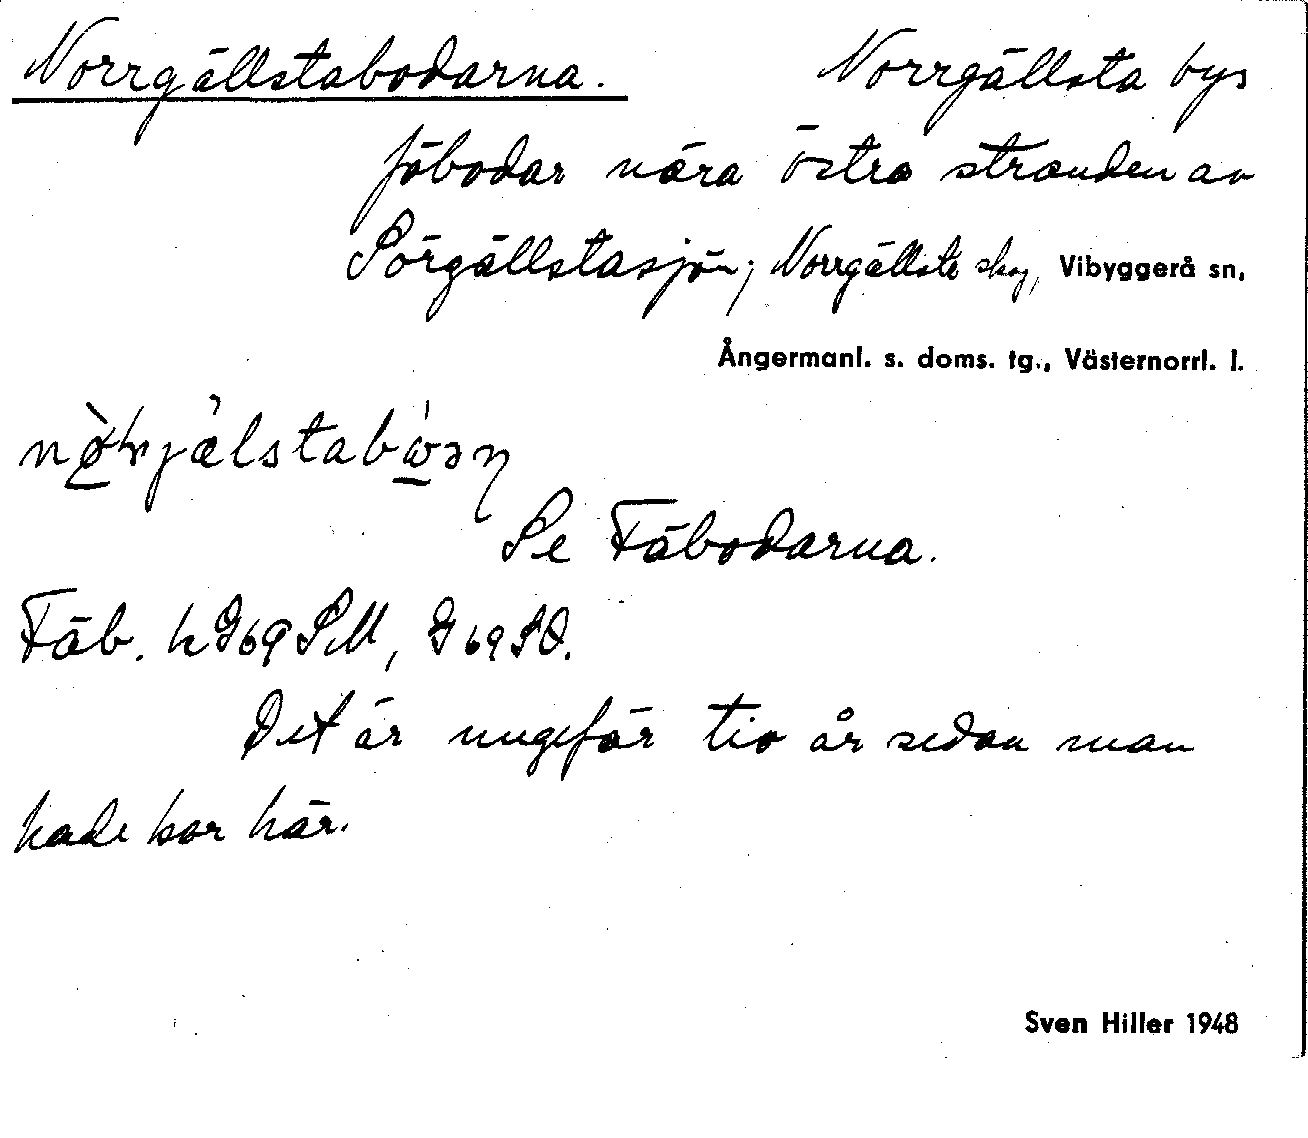 Norrgällstabodarna. Norrgällsta bys
fäbodar nära östra stranden av
Sörgällstasjön; Norrgällsta skog, Vibyggerå sn,
Ångermanl. s. doms. tg., Västernorrl. l.
Se Fäbodarna.
Fäb. h J69 SM, J 69 SO.
Det är ungefär tio år sedan man
hade kor här.
Sven Hiller 1948